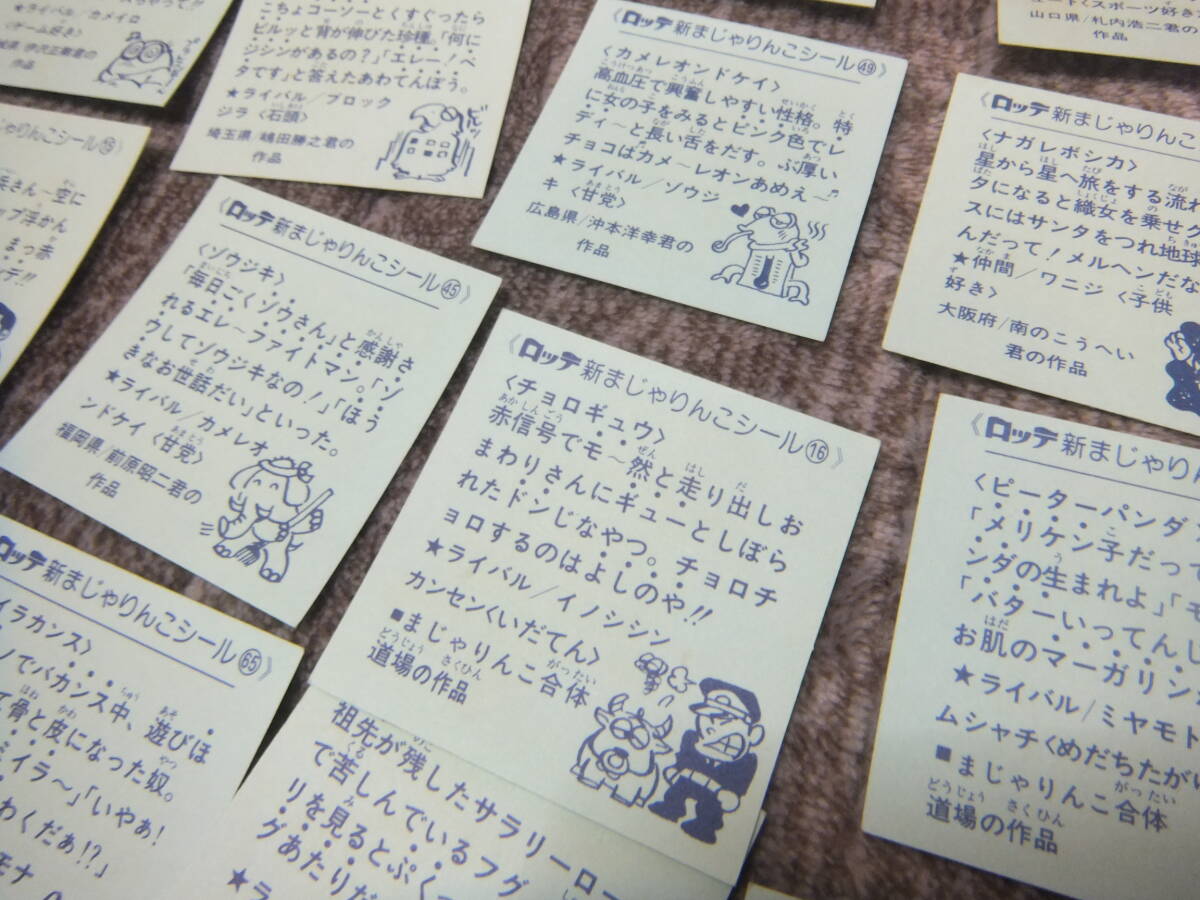 ★ライバル/カメイロ
〈ゲーム好き〉
こちょコーゾーとくすぐったら
ビルッと背が伸びた珍種。「何に
ジシンがあるの？」「エレー！ベ
タです」と答えたあわてんぼう。
★ライバル/ブロック
ジラ〈石頭〉
埼玉県/嶋田勝之君の
作品
《ロッテ 新まじゃりんこシール㊾》
〈カメレオンドケイ〉
高血圧で興奮しやすい性格。特
に女の子をみるとピンク色でレ
ディ〜と長い舌をだす。ぶ厚い
チョコばカメ〜レオンあめえ〜♬
★ライバル/ゾウジ
キ〈甘党〉
広島県/沖本洋幸君の
作品
山口県/札内浩二君の
作品
《ロッテ 新まじゃりんこ
〈ナガレボシカ〉
星から星へ旅をする流れ
タになると織女を乗せク
スにはサンタをつれ地球
んだって！メルヘンだな
★仲間/ワニジ〈子供
好き〉
大阪府/南のこうへい
君の作品
《ロッテ 新まじゃりんこシール㊺》
〈ゾウジキ〉
「毎日ごくゾウさん」と感謝さ
れるエレ〜ファイトマン。「ゾ
ウしてゾウジキなの！」「ほう
きなお世話だい」といった。
★ライバル/カメレオ
ンドケイ〈甘党〉
福岡県/前原昭二君の
作品
《ロッテ 新まじゃりんこシール⑯》
〈チョロギュウ〉
赤信号でモ〜然と走り出しお
まわりさんにギューとしぼら
れたドンじなやつ。チョロチ
ョロするのはよしのや!!
★ライバル/イノシシン
カンセン〈いだてん〉
■まじゃりんこ合体
道場の作品
《ロッテ 新まじゃり
〈ピーターパンダ
「メリケン子だって
ンダの生まれよ」「モ
「バターいってんじ
お肌のマーガリン
★ライバル/ミヤモト
ムシャチ〈めだちたがり
■まじゃりんこ合体
道場の作品
ロッテ 新まじゃりんこシール65》
イラカンス〉
ノでバカンス中、遊びほ
て骨と皮になった奴。
ミイラ〜」「いやぁ!
わくだぁ!?」
モナ
祖先が残したサラリーロー
で苦しんでいるフグ
リを見るとぷくっ
グあたりだ
★ラ